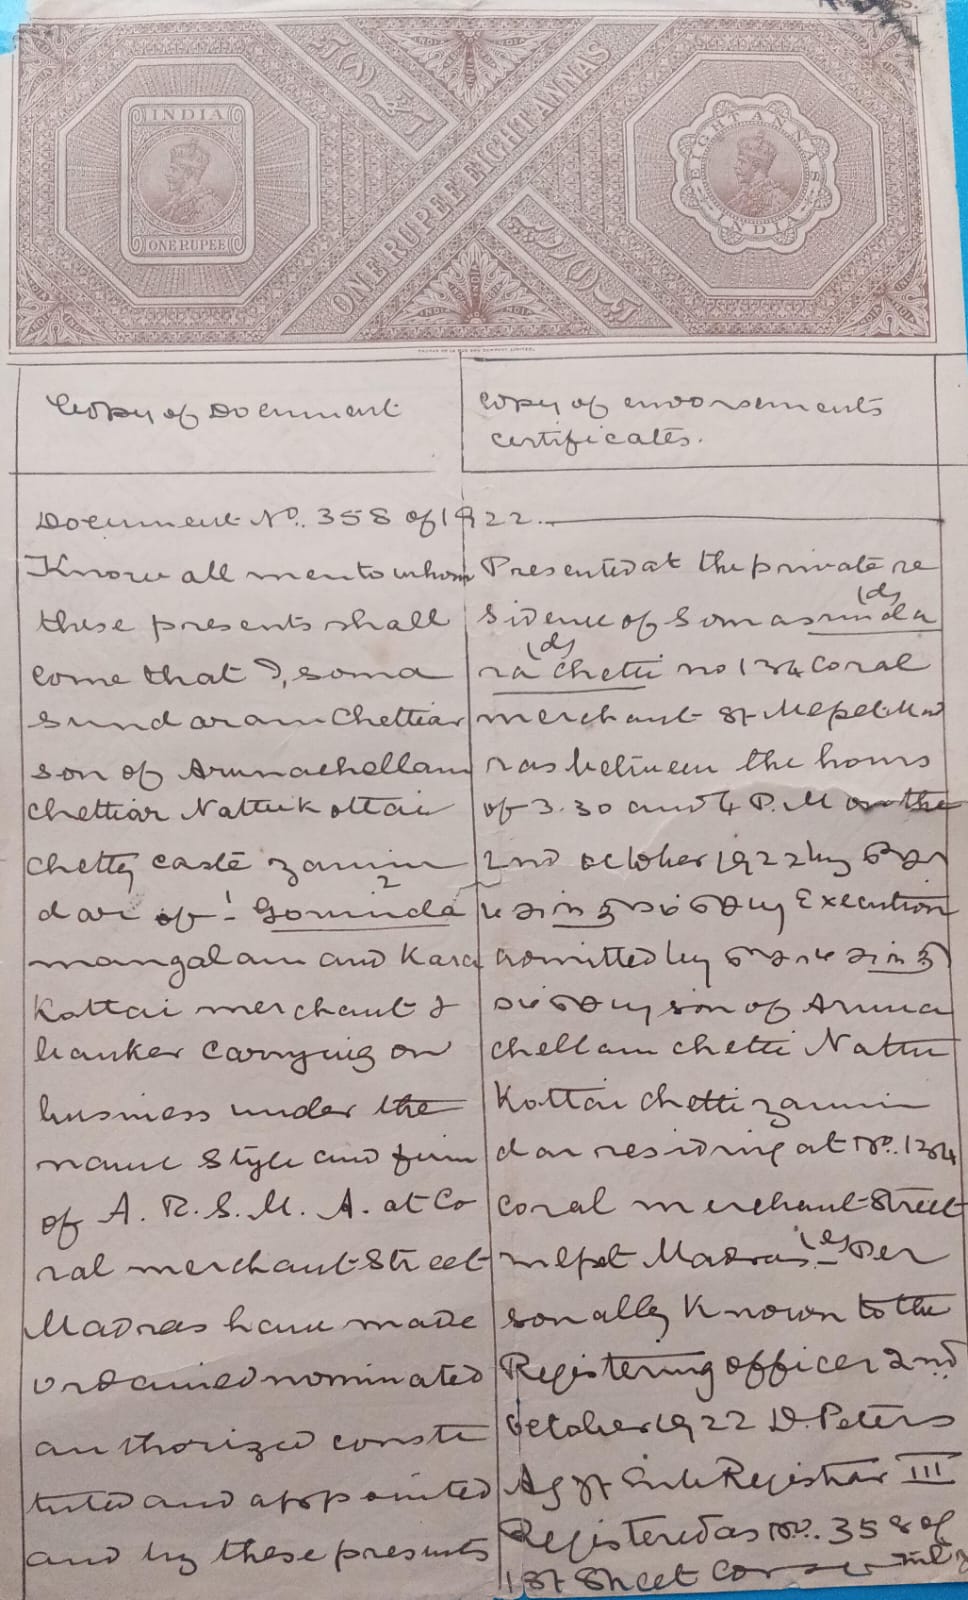 INDIA
ONE RUPEE
ONE RUPEE EIGHT ANNAS
EIGHT ANNAS
INDIA
Copy of Document
Document No. 358 of 1922.
Know all men to whom
these presents shall
come that I, soma
sundaram Chettiar
son of Arunachellam
chettiar Nattukottai
chetty caste zamin
dar of 1 Govinda 2
mangalam and Kara
Kottai merchant &
banker carrying on
business under the
name style and firm
of A. R. S. M. A. at Co
ral merchant Street
Madras have made
ordained nominated
authorized consti
tuted and appointed
and by these presents
Copy of endorsements
certificates.
Presented at the private re
sidence of Somasunda (ds)
ra Chetti (ds) no 134 Coral
merchant St Mepet Mad
ras between the hours
of 3.30 and 4 P.M on the
2nd october 1922 by
Execution
admitted by
son of Aruna
chellam chetti Nattu
Kottai chetti zamin
dar residing at No. 134
Coral merchant Street
mlpet Madras Per
sonally Known to the
Registering officer 2nd
october 1922 D. Peters
Ag Jt Sub Registrar III
Registered as No. 358 of
1st Sheet